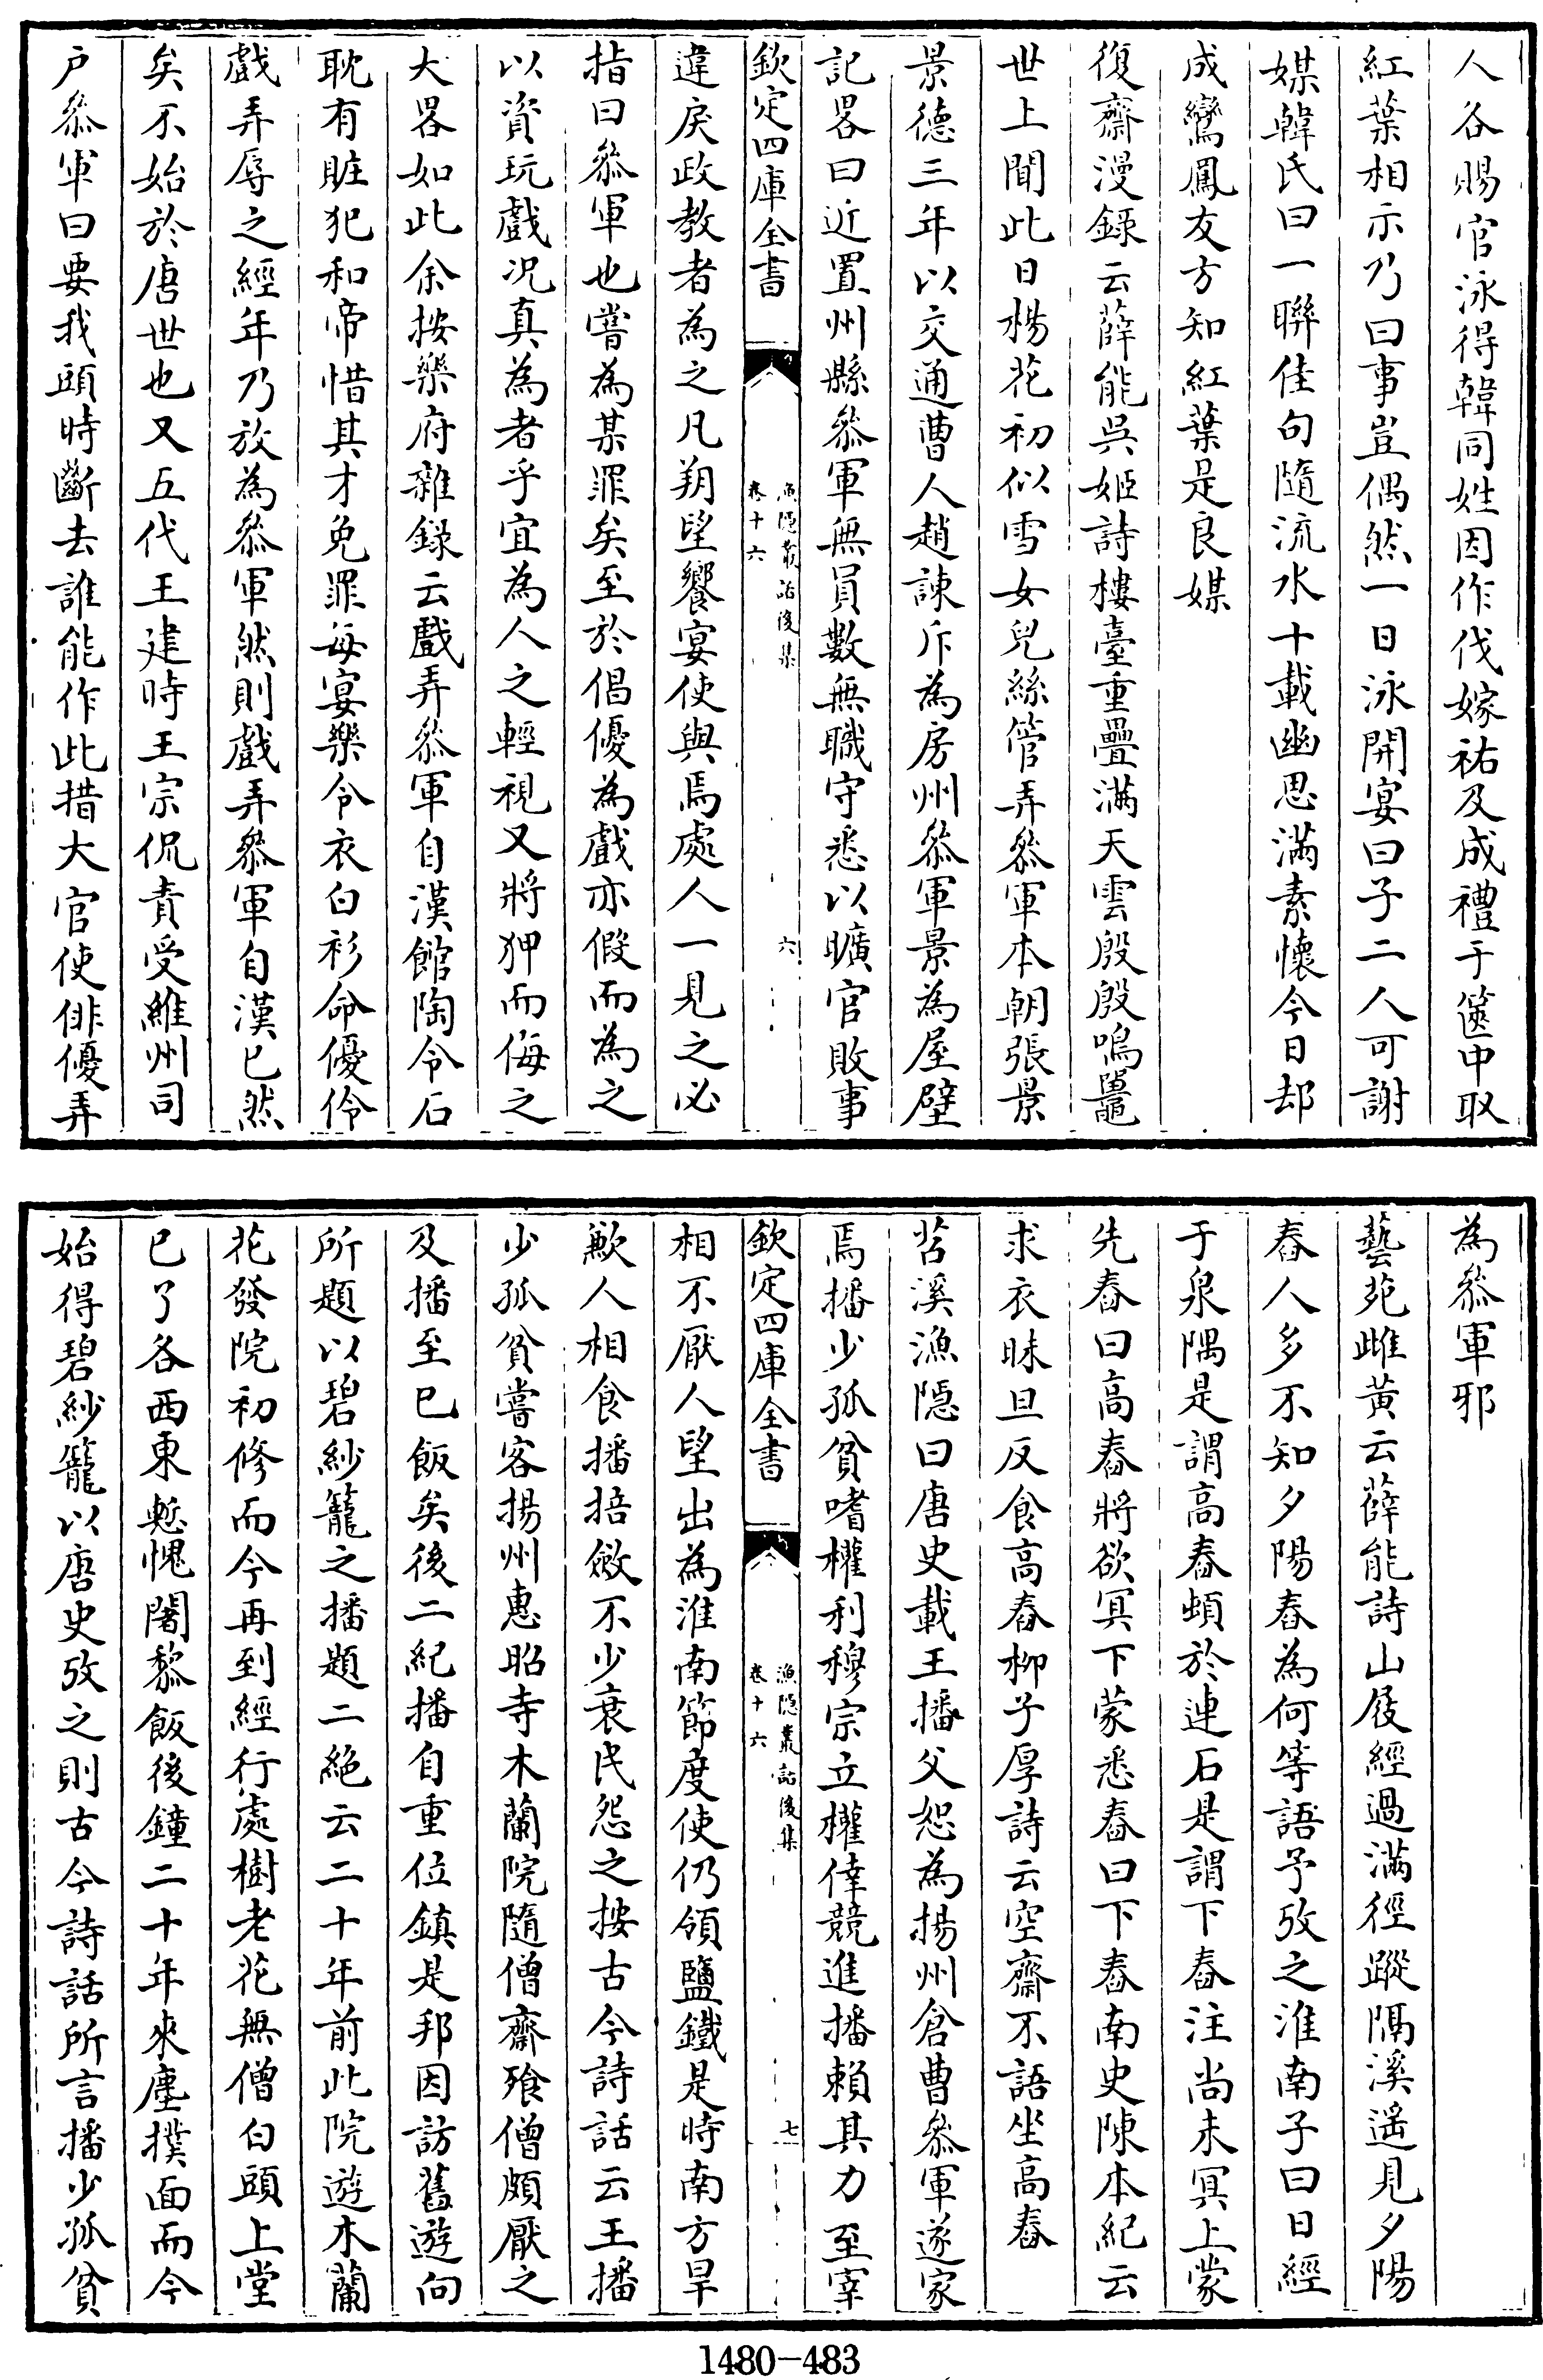 人各賜官泳得韓同姓因作伐嫁祐及成禮于篋中取
紅葉相示乃曰事豈偶然一日泳開宴曰子二人可謝
媒韓氏曰一聯佳句隨流水十載幽思滿素懷今日却
成鸞鳳友方知紅葉是良媒
復齋漫錄云薛能吳姬詩樓臺重疊滿天雲殷殷鳴鼉
世上聞此日楊花初似雪女兒絲管弄叅軍本朝張景
景德三年以交通曹人趙諫斥為房州叅軍景為屋壁
記畧曰近置州縣叅軍無員數無職守悉以曠官敗事
欽定四庫全書
漁隱叢話後集
卷十六
六
違戾政教者為之凡朔望饗宴使與焉處人一見之必
指曰叅軍也嘗為某罪矣至於倡優為戲亦假而為之
以資玩戲况真為者乎宜為人之輕視又將狎而侮之
大畧如此余按樂府雜録云戲弄叅軍自漢館陶令石
耽有賍犯和帝惜其才免罪每宴樂令衣白衫命優伶
戲弄辱之經年乃放為叅軍然則戲弄叅軍自漢已然
矣不始於唐世也又五代王建時王宗侃責受維州司
户叅軍曰要我頭時斷去誰能作此措大官使俳優弄
為叅軍邪
藝苑雌黄云薛能詩山屐經過滿徑蹤隔溪遥見夕陽
舂人多不知夕陽舂為何等語予攷之淮南子曰日經
于泉隅是謂高舂頓於連石是謂下舂注尚未冥上蒙
先舂曰高舂將欲冥下蒙悉舂曰下舂南史陳本紀云
求衣昧旦反食高舂柳子厚詩云空齋不語坐高舂
苕溪漁隱曰唐史載王播父恕為揚州倉曹叅軍遂家
焉播少孤貧嗜權利穆宗立權倖競進播賴其力至宰
欽定四庫全書
漁隱叢話後集
卷十六
七
相不厭人望出為淮南節度使仍領鹽鐵是時南方旱
歉人相食播掊斂不少衰民怨之按古今詩話云王播
少孤貧嘗客揚州惠昭寺木蘭院隨僧齋飱僧頗厭之
及播至已飯矣後二紀播自重位鎮是邦因訪舊遊向
所題以碧紗籠之播題二絶云二十年前此院遊木蘭
花發院初修而今再到經行處樹老花無僧白頭上堂
已了各西東慙愧闍黎飯後鐘二十年來塵撲面而今
始得碧紗籠以唐史攷之則古今詩話所言播少孤貧
1480-483